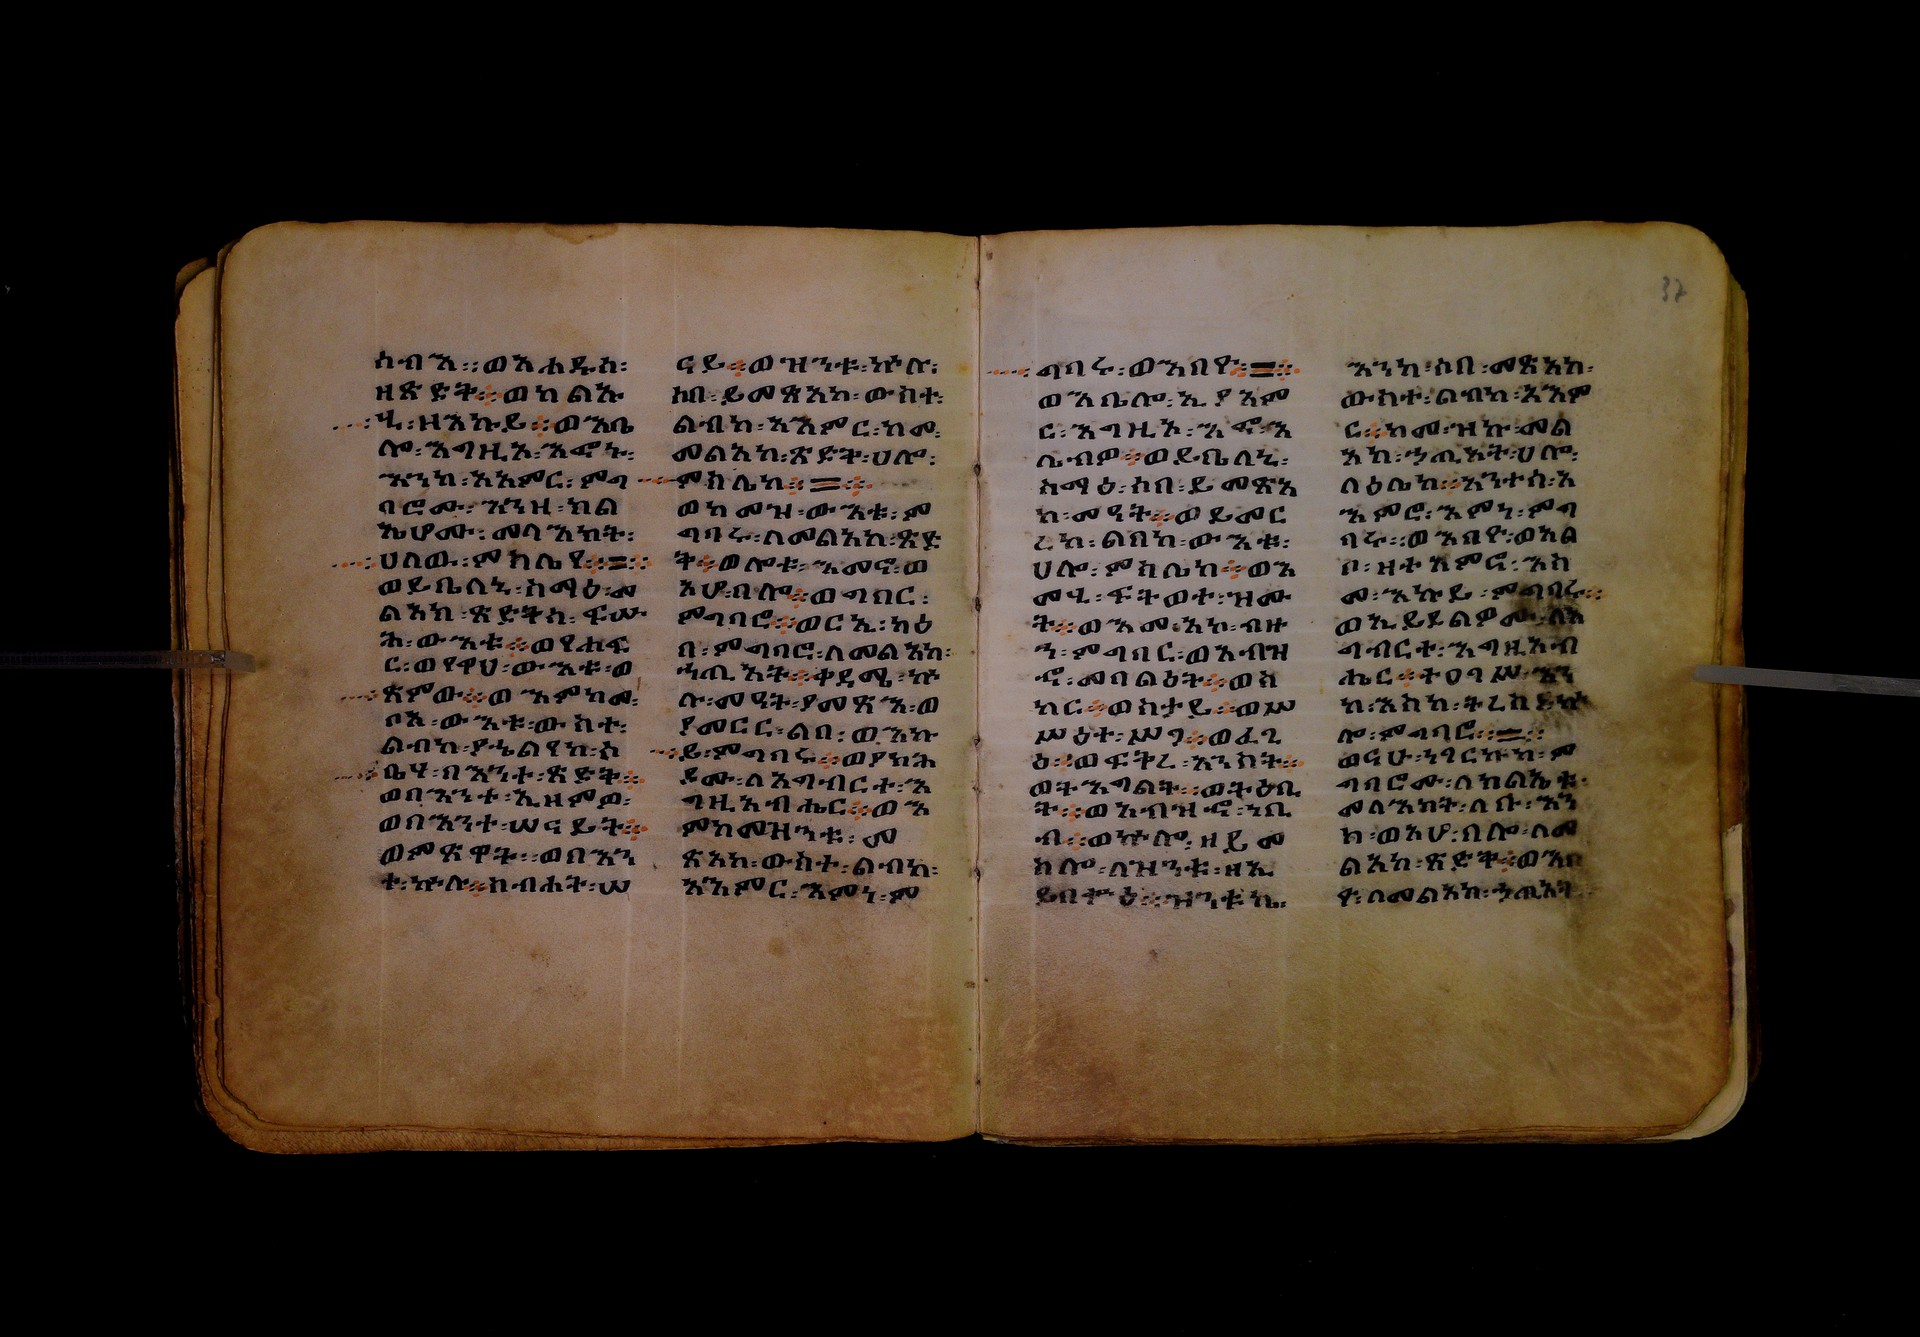 ሰብእ ፡ ወአሐዱሰ ፡
ዘጽድቅ ፡ ወካልኡ
ሂ ፡ ዘእኩይ ። ወእቤ
ሎ ፡ እግዚኦ ፡ እፎኑ ፡
እንከ ፡ አአምር ፡ ምግ
ባሮሙ ፡ እንዘ ፡ ክል
ኤሆሙ ፡ መላእክት ፡
ሀለዉ ፡ ምስሌየ ።
ወይቤለኒ ፡ ስማዕ ፡ መ
ልአከ ፡ ጽድቅሰ ፡ ፍሡ
ሕ ፡ ውእቱ ። ወየሐፍ
ር ፡ ወየዋህ ፡ ውእቱ ፡ ወ
ጽምው ። ወእምከመ ፡
ቦአ ፡ ውእቱ ፡ ውስተ ፡
ልብከ ፡ ያኄልየከ ፡ ሶ
ቤሃ ፡ በእንተ ፡ ጽድቅ ።
ወበእንተ ፡
ወበእንተ ፡ ሠናይት ።
ወምጽዋት ፡ ወበእን
ተ ፡ ኵሉ ። ስብሐት ፡ ሠ
ናይ ። ወዝንቱ ፡ ኵሉ ፡
ሶበ ፡ ይመጽአከ ፡ ውስተ ፡
ልብከ ፡ አእምር ፡ ከመ ፡
መልአከ ፡ ጽድቅ ፡ ሀሎ ፡
ምስሌከ ።
ወከመዝ ፡ ውእቱ ፡ ም
ግባሩ ፡ ለመልአከ ፡ ጽድ
ቅ ። ወሎቱ ፡ እመኖ ፡ ወ
አሆ ፡ በሎ ። ወግበር ፡
ምግባሮ ። ወርኢ ፡ ካዕ
በ ፡ ምግባሮ ፡ ለመልአከ ፡
ኀጢአት ። ቀዳሜ ፡ ኵ
ሉ ፡ መዓት ፡ ያመጽእ ፡ ወ
ያመርር ፡ ልበ ፡ ወእኩ
ይ ፡ ምግባሩ ። ወያስሕ
ቶሙ ፡ ለአግብርተ ፡ እ
ግዚአብሔር ። ወእ
ምከመ ፡ ዝንቱ ፡ መ
ጽአከ ፡ ውስተ ፡ ልብከ ፡
አእምር ፡ እምነ ፡ ም
ግባሩ ፡ ወእበየ ።
ወእቤሎ ፡ ኢያአም
ር ፡ እግዚኦ ፡ እፎ ፡ እ
ሌብዎ ። ወይቤለኒ ፡
ስማዕ ፡ ሶበ ፡ ይመጽአ
ከ ፡ መዓት ። ወይመር
ረከ ፡ ልበከ ፡ ውእቱ ፡
ሀሎ ፡ ምስሌከ ። ወእ
መሂ ፡ ፍትወተ ፡ ዝሙ
ት ። ወእመ ፡ አኮ ፡ ብዙ
ኅ ፡ ምግባር ፡ ወአብዝ
ኆ ፡ መባልዕት ። ወስ
ካር ። ወስታይ ። ወሠ
ሥዕተ ፡ ሥጋ ። ወፈጊ
ዕ ። ወፍትረ ፡ አንስት ።
ወትእግልት ። ወትዕቢ
ት ። ወአብዝኆ ፡ ነቢ
ብ ። ወኵሎ ፡ ዘይመ
ስሎ ፡ ለዝንቱ ፡ ዘኢ
ይበቍዕ ። ዝንቱ ፡ ኬ ፡
እንከ ፡ ሶበ ፡ መጽአከ ፡
ውስተ ፡ ልብከ ፡ አእም
ር ። ከመ ፡ ዝኩ ፡ መል
አከ ፡ ኀጢአት ፡ ሀሎ ፡
ላዕሌከ ። አንተሰ ፡ አ
እምሮ ፡ እምነ ፡ ምግ
ባሩ ። ወእበዮ ፡ ወአል
ቦ ፡ ዘተአምኖ ፡ እስ
መ ፡ እኩይ ፡ ምግባሩ ።
ወኢይደልዎሙ ፡ ለአ
ግብርተ ፡ እግዚአብ
ሔር ።
ሎ ፡ ምግባር ።
ወናሁ ፡ ነገርኩከ ፡ ም
ግባሮሙ ፡ ለክልኤቱ ፡
መላእክት ፡ ለቡ ፡ እን
ከ ፡ ወአሆ ፡ በሎ ፡ ለመ
ልአከ ፡ ጽድቅ ። ወእበ
ዮ ፡ ለመልአከ ፡ ኀጢአት